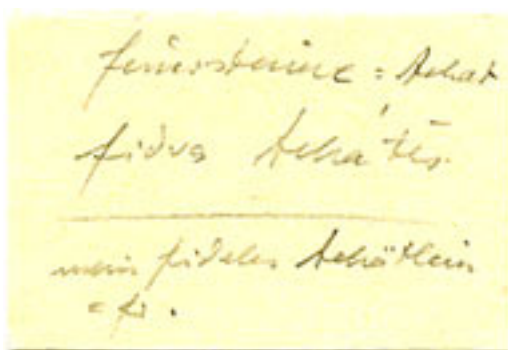 Feuersteine = Achat
fidus Achátēs
mein fideles Achätlein
= fi.